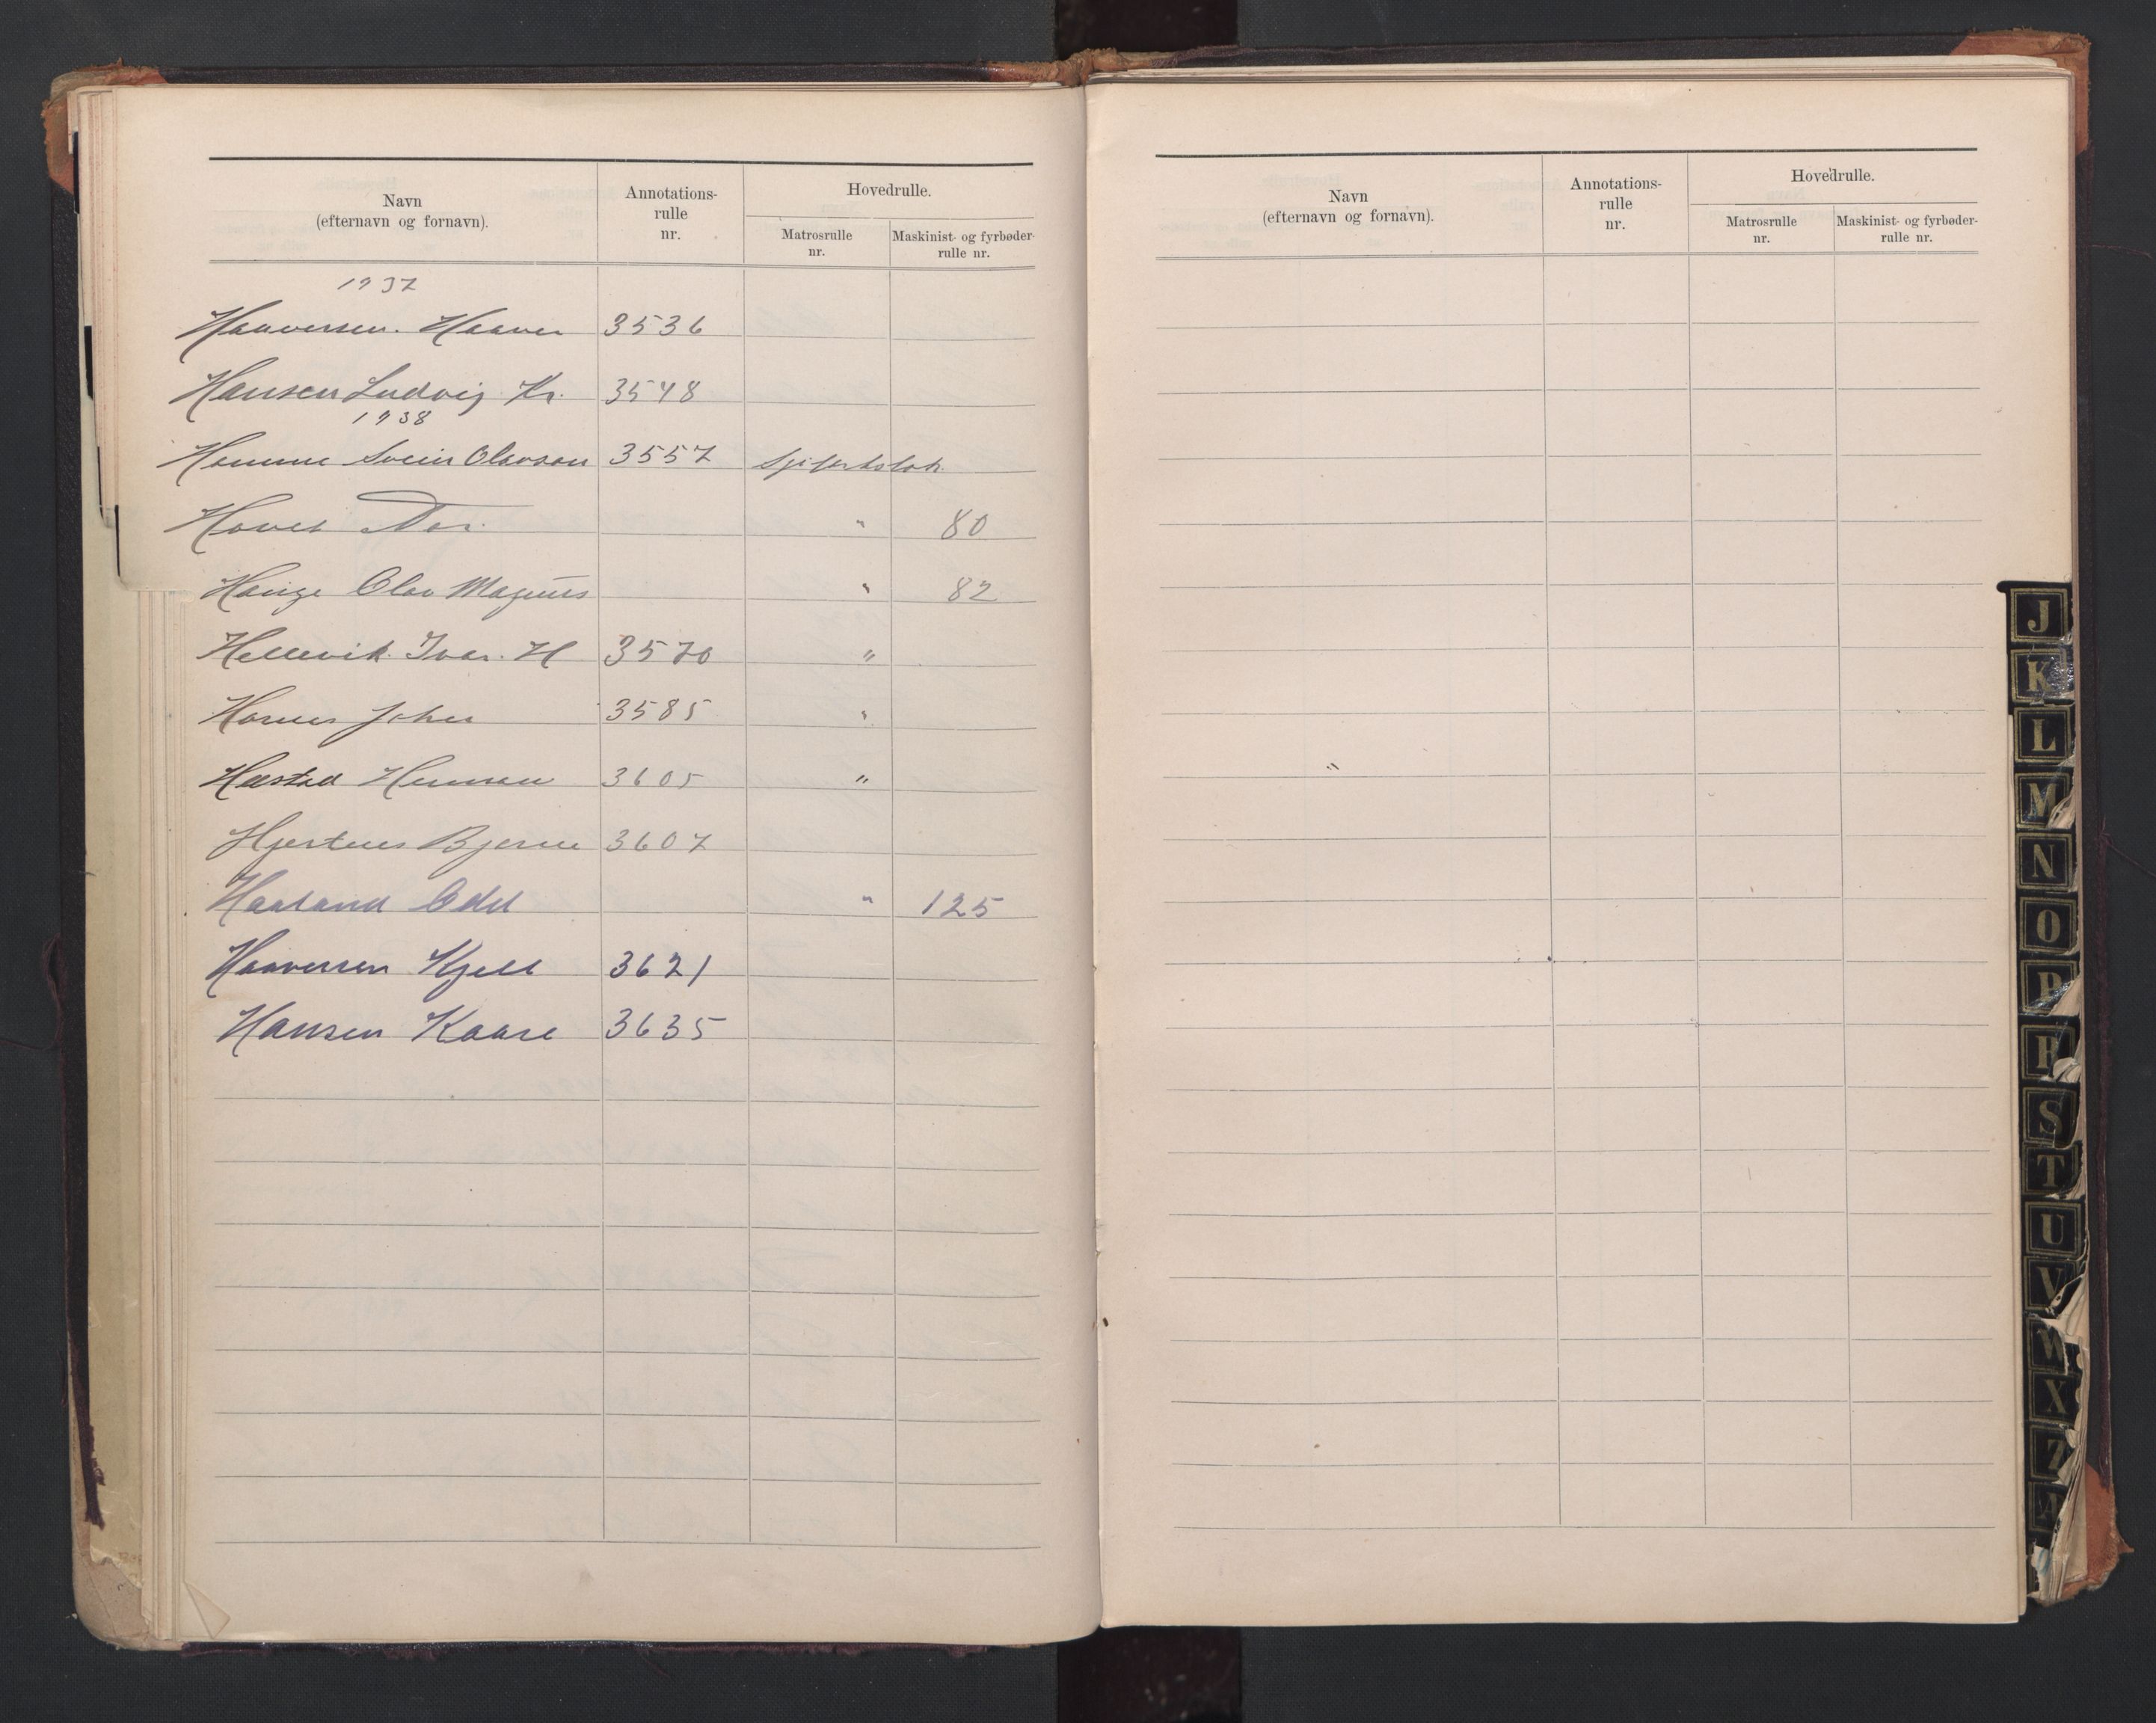 Navn
(efternavn og fornavn).
Annotations-
rulle
nr.
Hovedrulle.
Matrosrulle
nr.
Maskinist- og fyrbøder-
rulle nr.
1937
Haaversen. Haaver 3536
Hansen Ludvig Kr. 3548
1938
Homme Svein Olavson 3557
Hovet Tor. " 80
Hauge Olav Magnus " 82
Hellevik. Ivar. H 3570 "
Hornes Johan 3585 "
Hæstad Herman 3605 "
Hjertnes Bjarne 3607
Haaland Odd " 125
Haaversen Kjell 3621
Hansen Kaare 3635
Navn
(efternavn og fornavn).
Annotations-
rulle
nr.
Hovedrulle.
Matrosrulle
nr.
Maskinist- og fyrbøder-
rulle nr.
"
J
K
L
M
N
O
P
R
S
T
U
V
W
X
Z